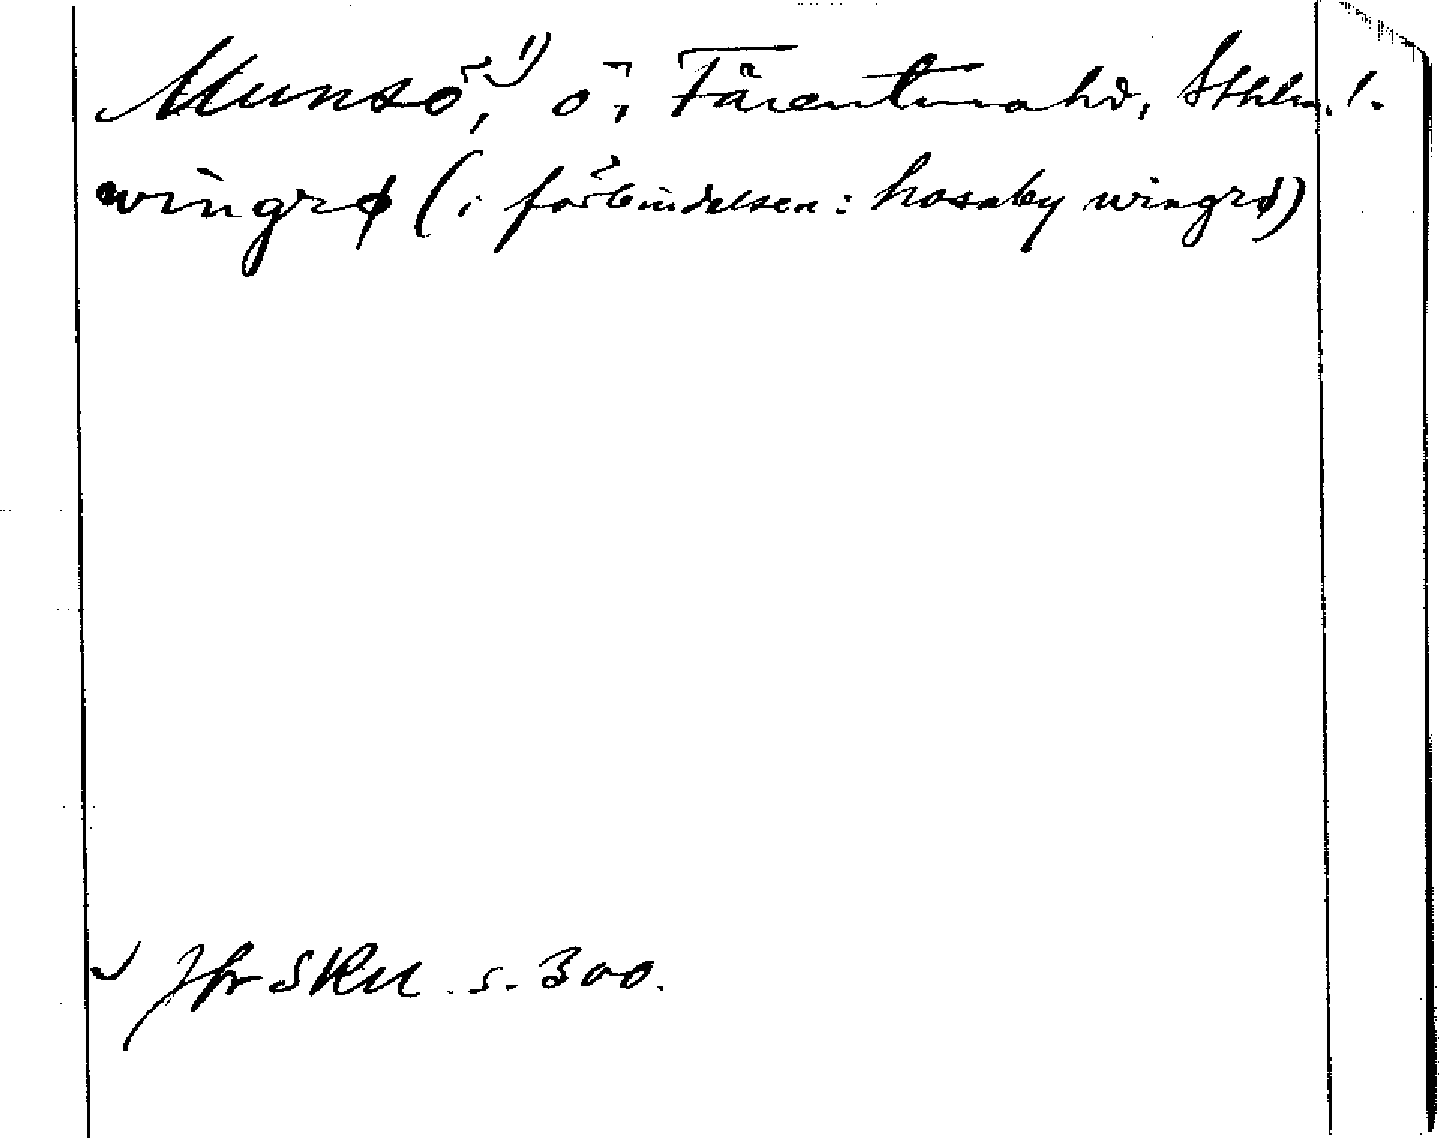 Munsö,¹) ö, Färentuna hd, Sthlm. l.
wingrø (i förbindelsen: hosaby wingrø)
Jfr SRU s. 300.